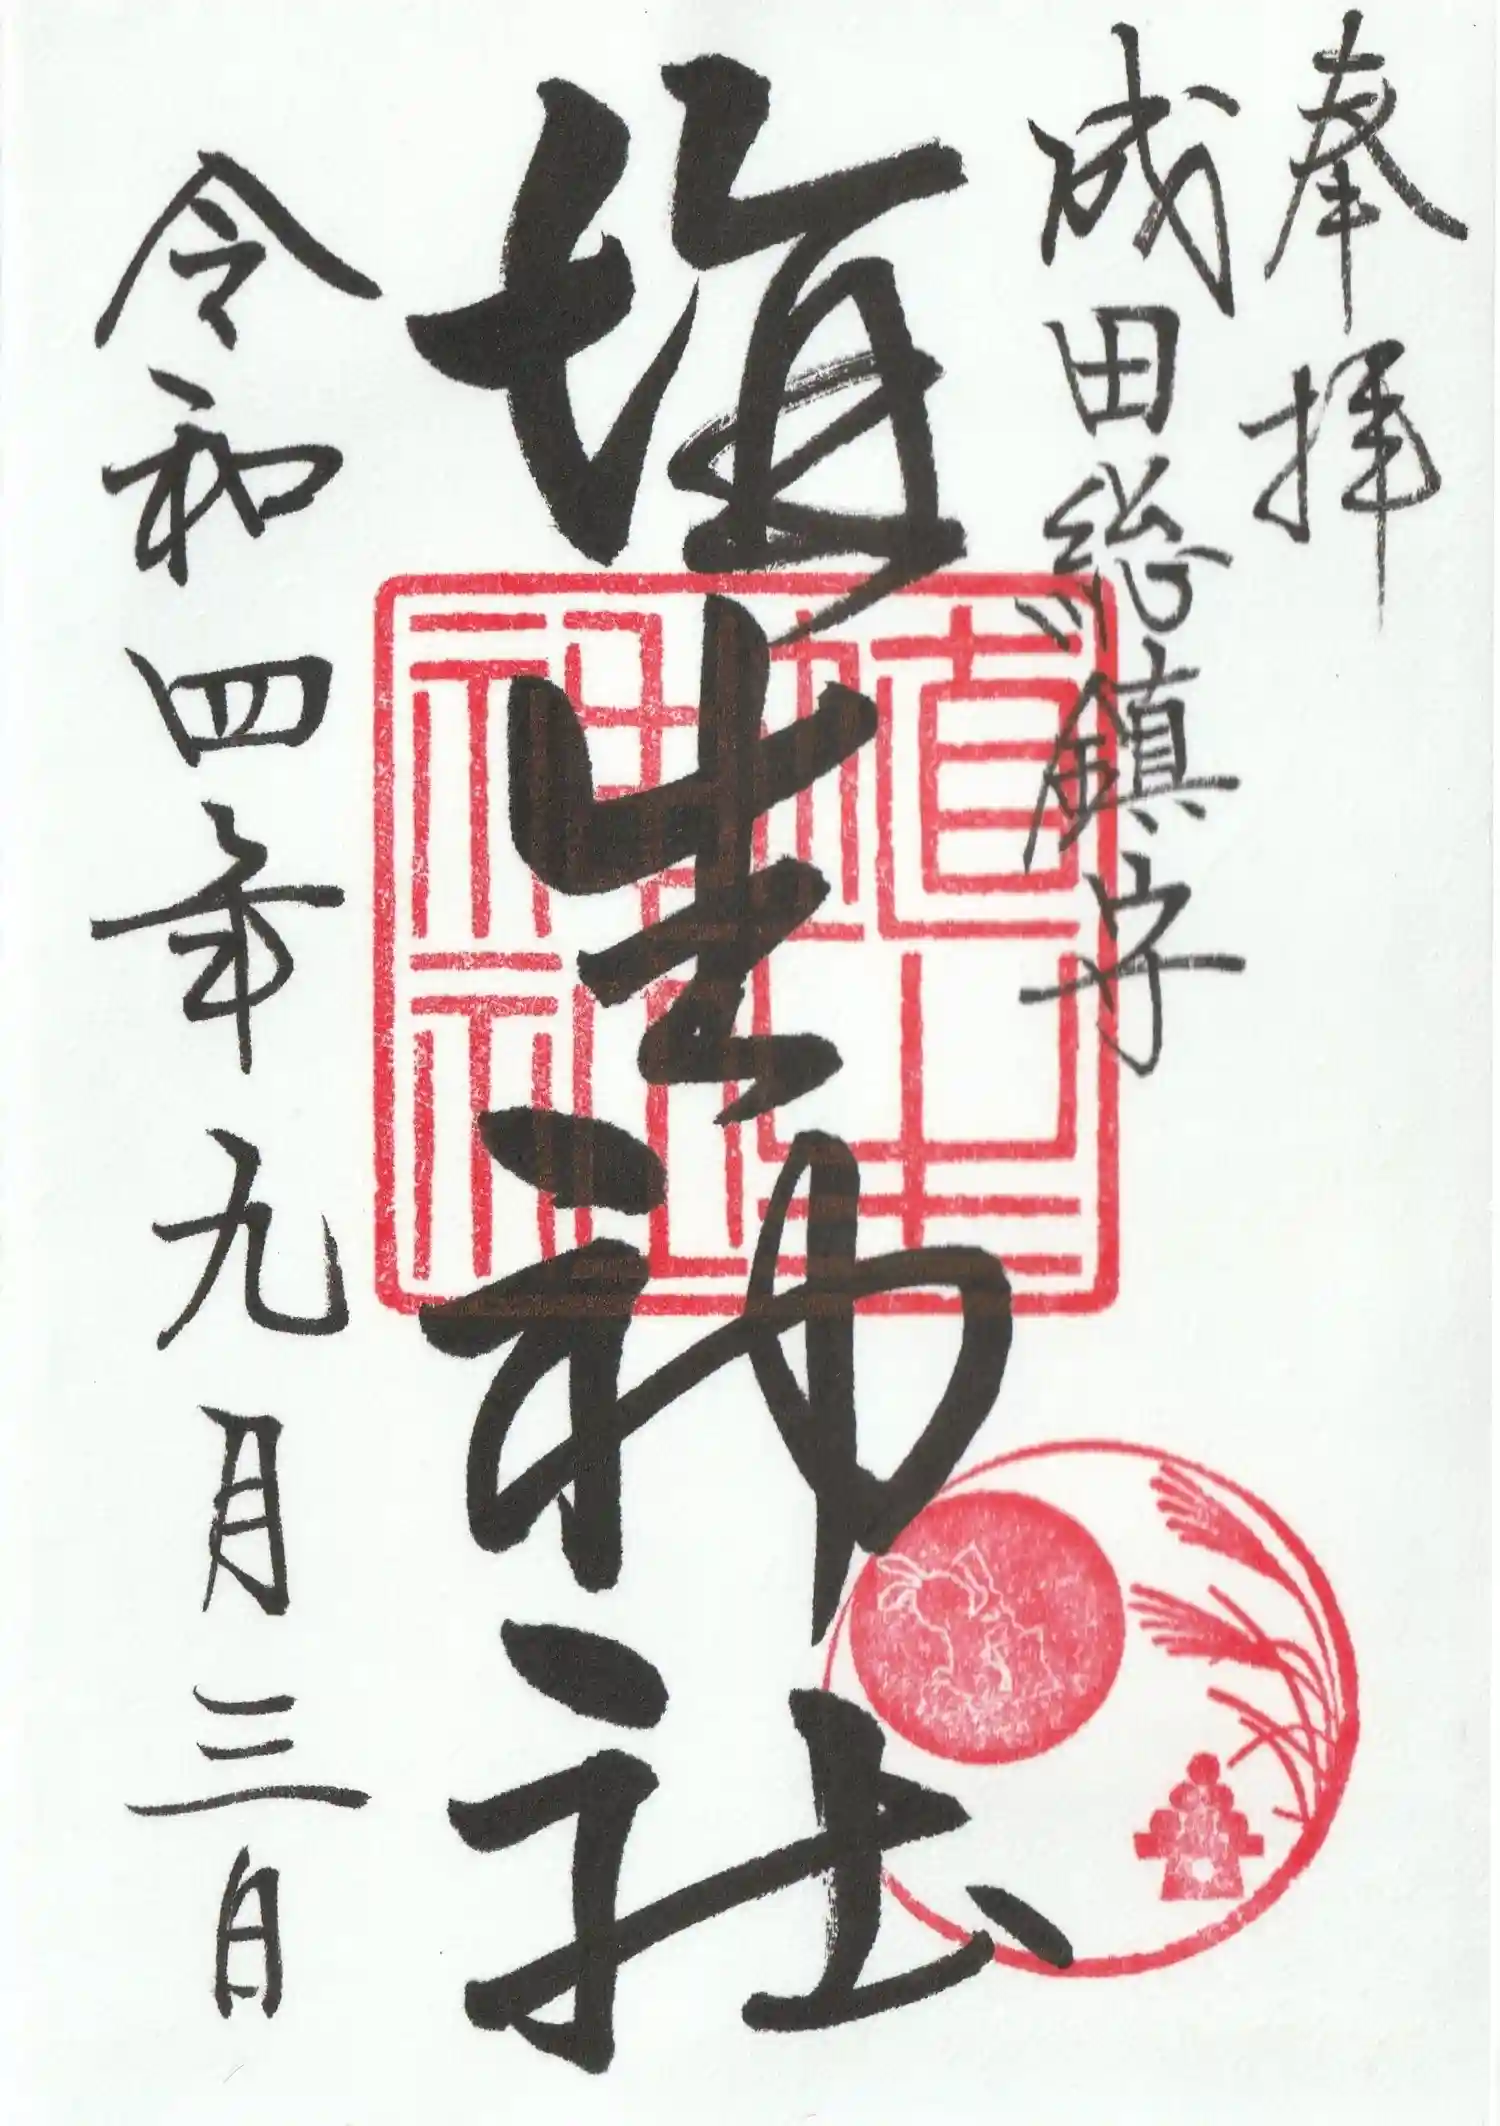 奉拝
成田総鎮守
埴生神社
埴生神社
令和四年九月三日